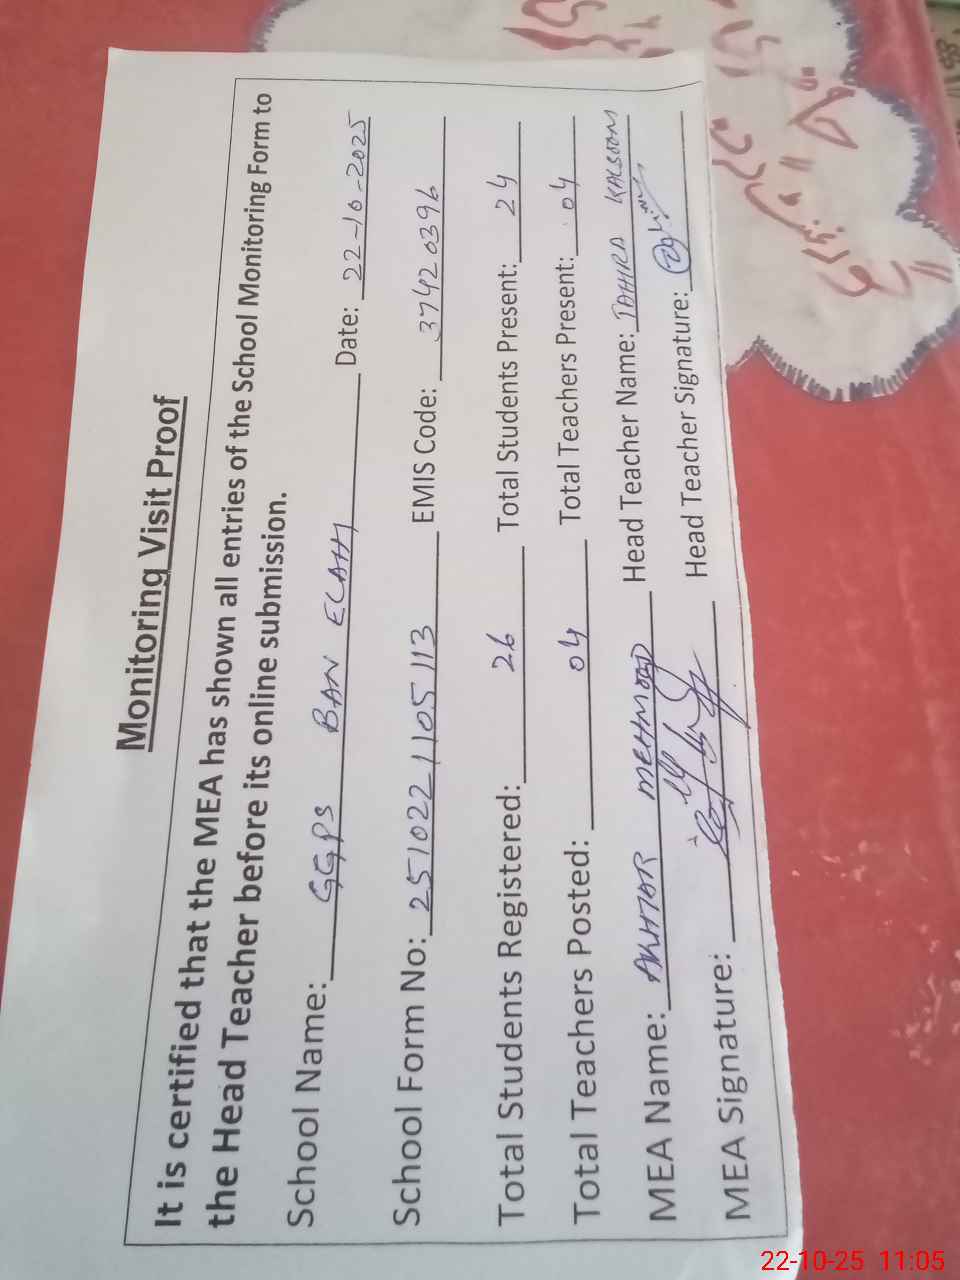 Monitoring Visit Proof
It is certified that the MEA has shown all entries of the School Monitoring Form to
the Head Teacher before its online submission.
School Name: GGPS BAN ELAHI Date: 22-10-2025
School Form No: 251022 1105 113 EMIS Code: 37420396
Total Students Registered: 26 Total Students Present: 24
Total Teachers Posted: 04 Total Teachers Present: 04
MEA Name: AKHTAR MEHMOOD Head Teacher Name: TAHIRA KALSOOM
MEA Signature: Head Teacher Signature:
22-10-25 11:05